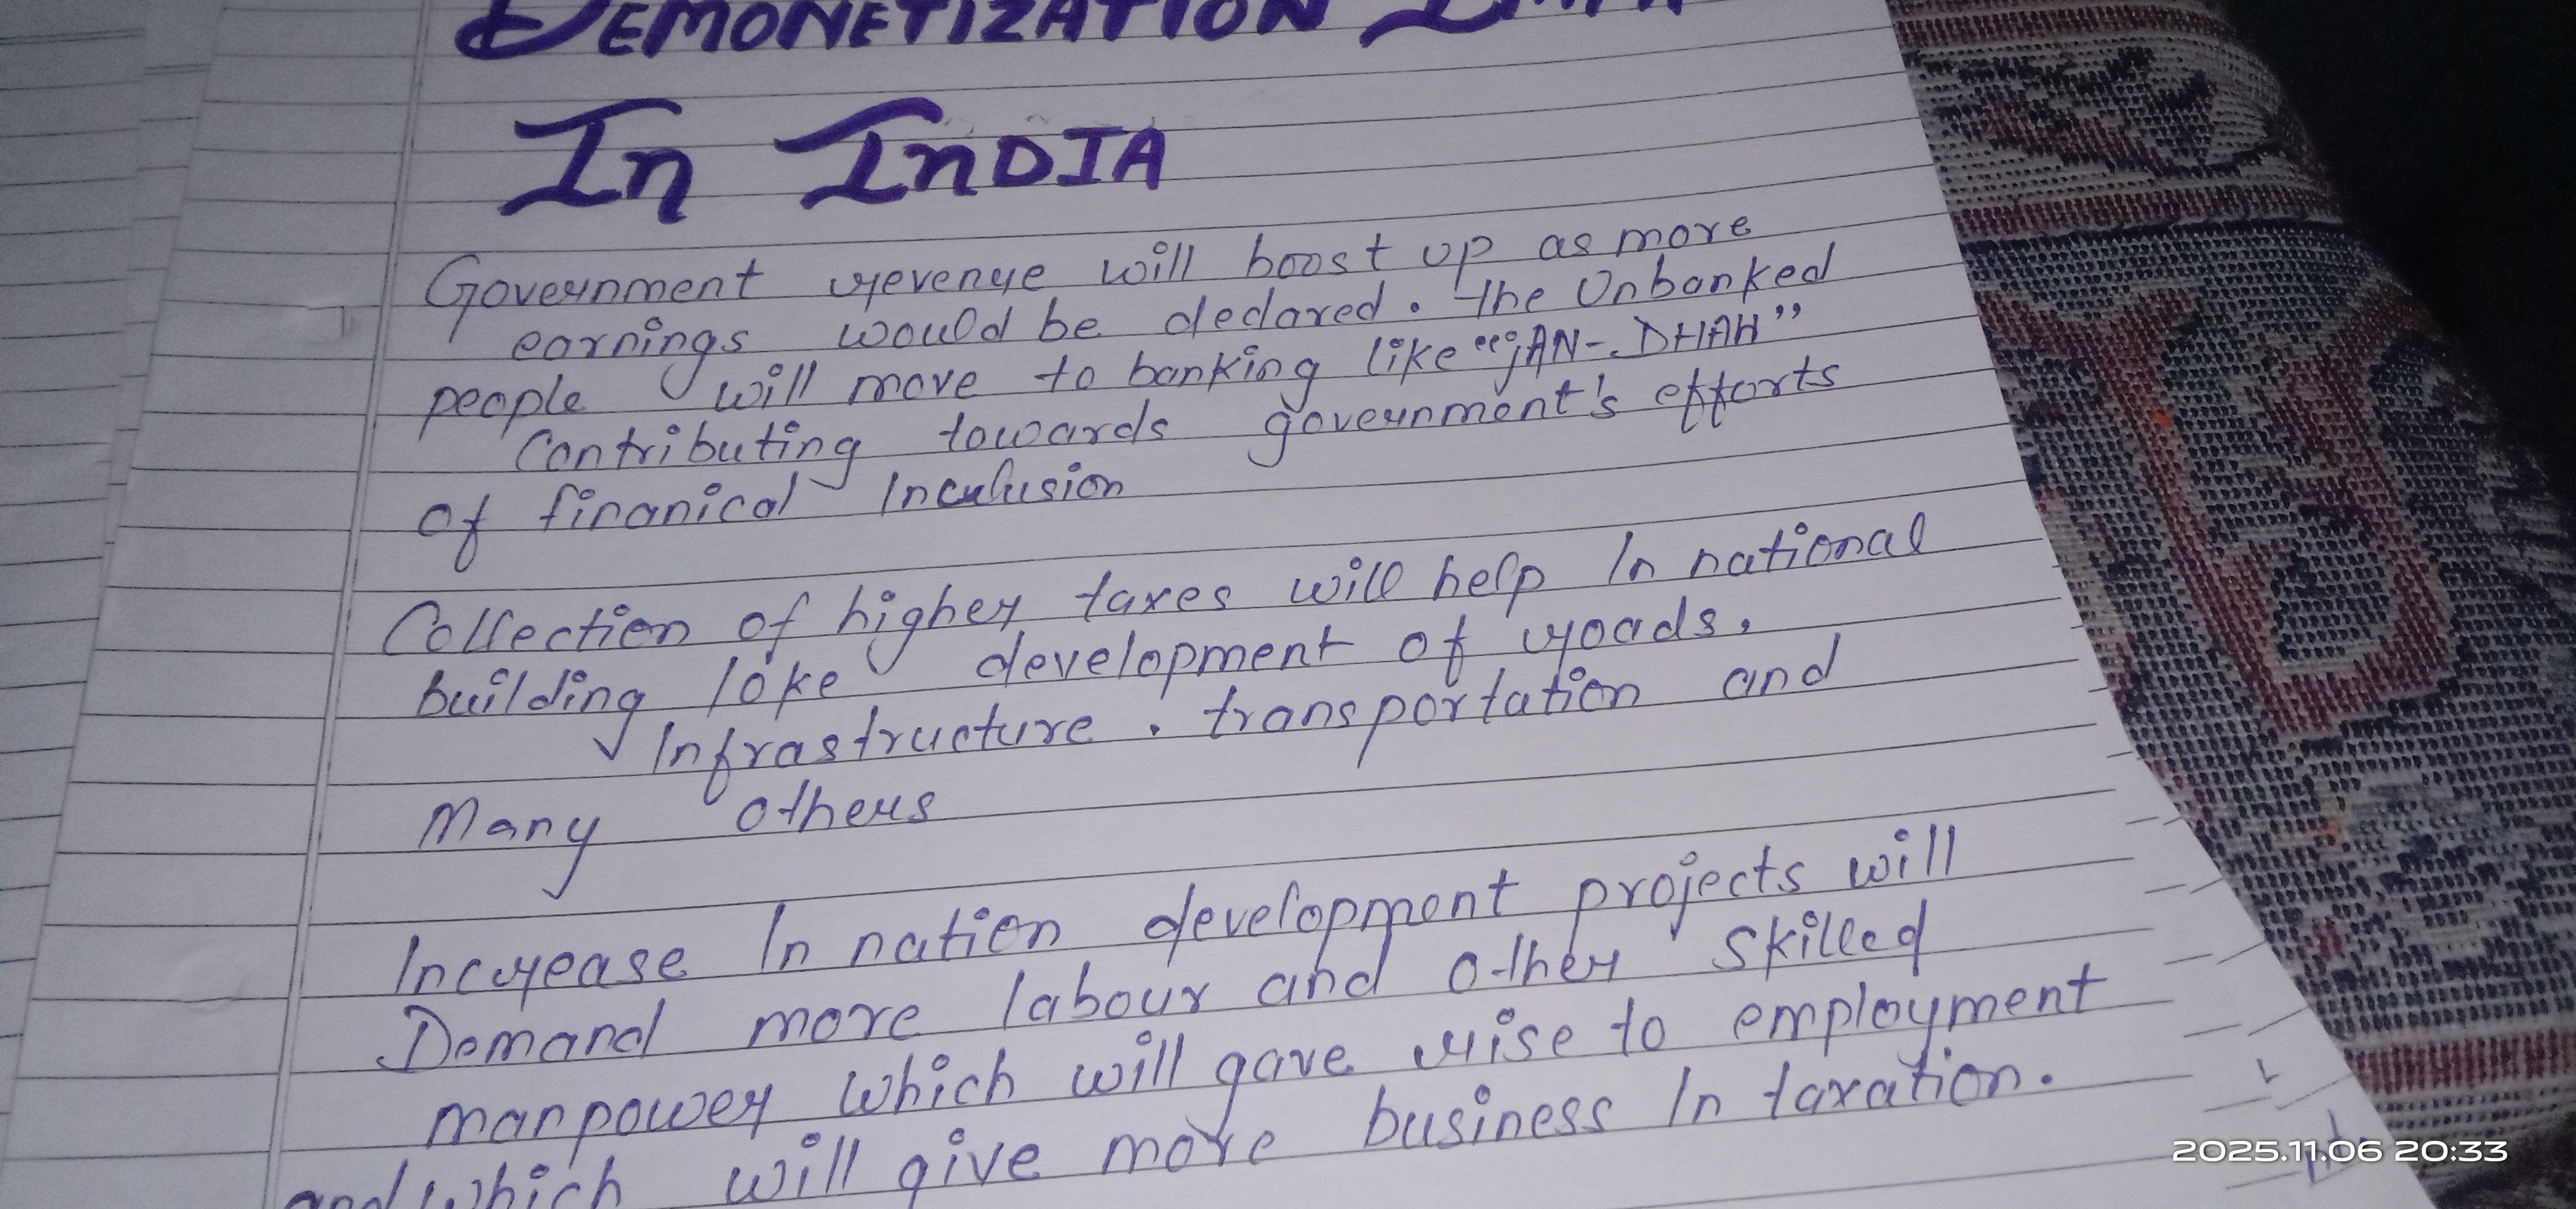 DEMONETIZATION
In INDIA
Government revenue will boost up as more
earnings would be declared. the Unbanked
people will move to banking like "jAN-DHAH"
Contributing towards government's efforts
of finanical Inculusion
Collection of higher taxes will help In national
building loke development of roads,
Infrastructure. transportation and
Many others
Increase In nation development projects will
Demand more labour and other skilled
manpower which will gave rise to employment
and which will give more business In taxation.
2025.11.06 20:33